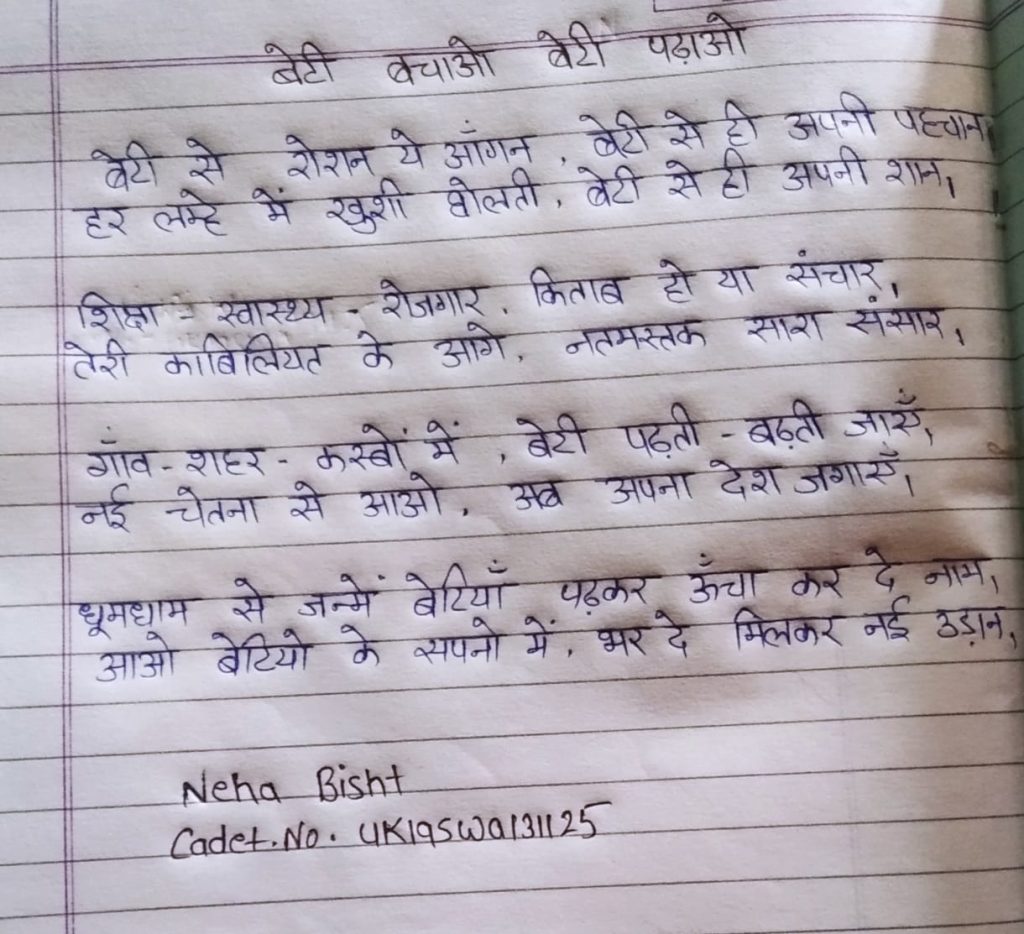 बेटी बचाओ बेटी पढ़ाओ
बेटी से रोशन ये आँगन, बेटी से ही अपनी पहचान,
हर लम्हे में खुशी घोलती, बेटी से ही अपनी शान,
शिक्षा - स्वास्थ्य - रोजगार, किताब हो या संचार,
तेरी काबिलियत के आगे, नतमस्तक सारा संसार,
गाँव - शहर - कस्बों में, बेटी पढ़ती - बढ़ती जाएँ,
नई चेतना से आओ, अब अपना देश जगाएँ,
धूमधाम से जन्में बेटियाँ पढ़कर ऊँचा कर दे नाम,
आओ बेटियो के सपनो में, भर दे मिलकर नई उड़ान,
Neha Bisht
Cadet.No. UK19SWA131125